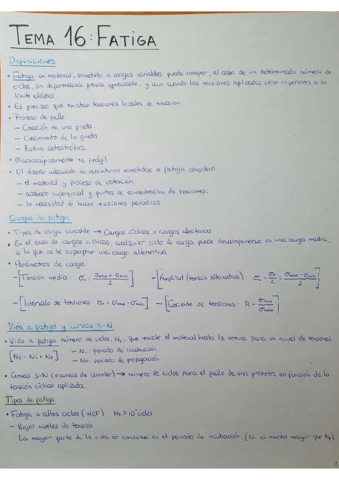 TEMA 16: FATIGA
Definiciones
• Fatiga: un material, sometido a cargas variables puede romper, al cabo de un determinado número de
ciclos, sin deformación previa apreciable, y aun cuando las tensiones aplicadas sean inferiores a su
límite elástico.
• Es preciso que existan tensiones locales de tracción.
• Proceso de fallo
– Creación de una grieta.
– Crecimiento de la grieta.
– Rotura catastrófica.
• Macroscópicamente es frágil
• El diseño adecuado de estructuras sometidas a fatiga considera:
– el material y proceso de obtención.
– acabado superficial y puntos de concentración de tensiones.
– la necesidad de hacer revisiones periódicas
Cargas de fatiga
• Tipos de carga variable → Cargas cíclicas o cargas aleatorias
• En el caso de cargas cíclicas, cualquier ciclo de carga puede descomponerse en una carga media,
a la que se le superpone una carga alternativa.
• Parámetros de carga:
– [Tensión media: σm = σmax + σmin / 2] – [Amplitud (tensión alternativa): σa = σr / 2 = σmax - σmin / 2]
– [Intervalo de tensiones σr = σmax - σmin] – [Cociente de tensiones: R = σmin / σmax]
Vida a fatiga y curvas S-N
• Vida a fatiga: número de ciclos, Nf, que resiste el material hasta la rotura para un nivel de tensiones
[Nf = Ni + Np] – Ni: periodo de incubación
– Np: periodo de propagación
• Curvas S-N (o curvas de Wöhler) → número de ciclos para el fallo de una probeta en función de la
tensión cíclica aplicada.
Tipos de fatiga
• Fatiga a altos ciclos (HCF) Nf > 10⁴ ciclos
– Bajos niveles de tensión
La mayor parte de la vida se consume en el periodo de incubación (Ni es mucho mayor que Np)